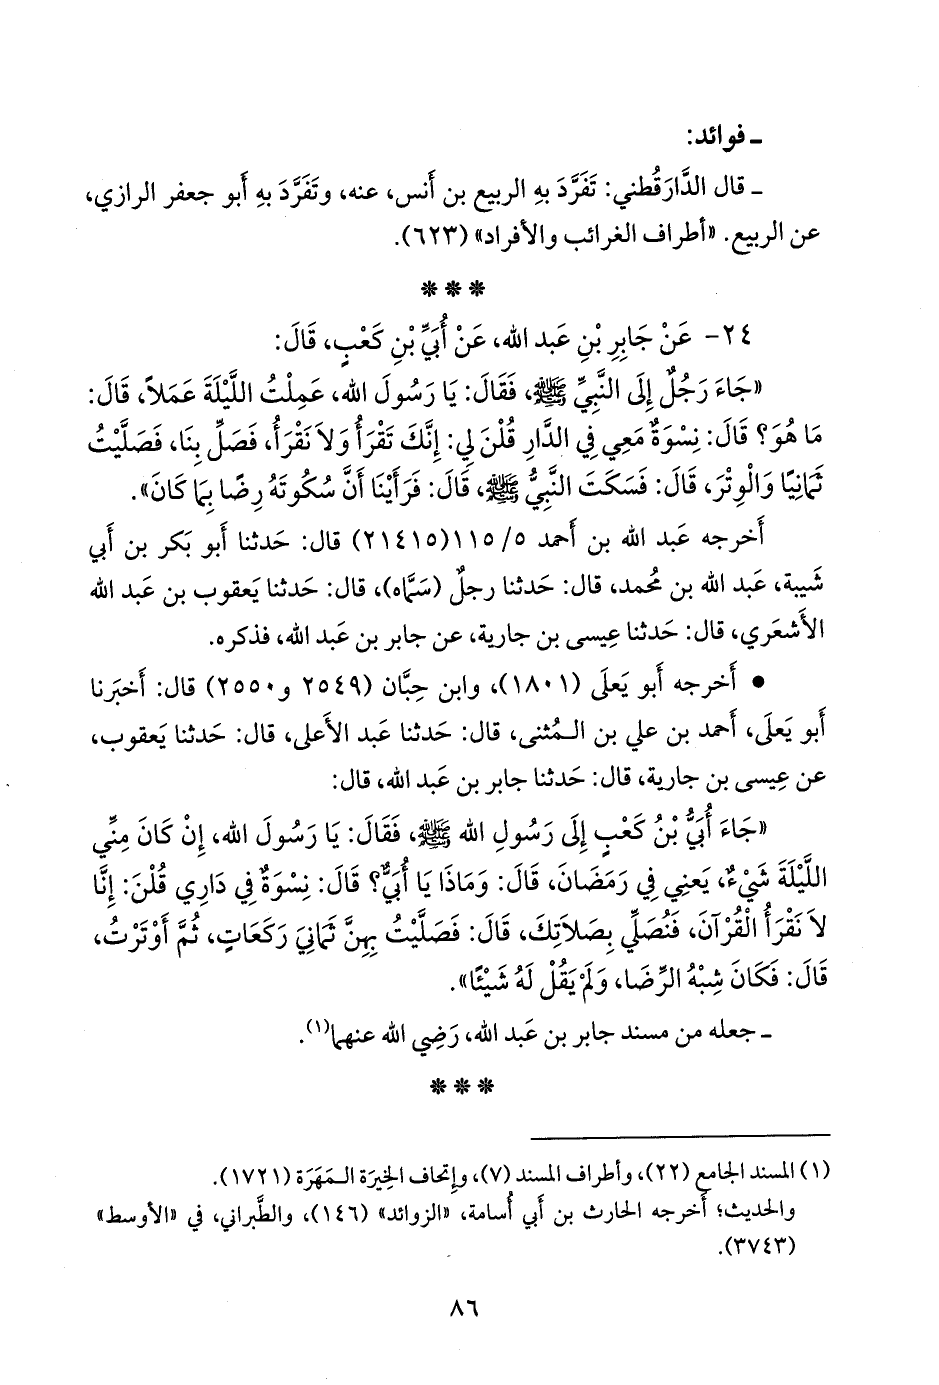 ـ فوائد:
ـ قال الدَّارَقُطني: تَفَرَّدَ بِهِ الربيع بن أَنس، عنه، وتَفَرَّدَ بِهِ أَبو جعفر الرازي،
عن الربيع. «أطراف الغرائب والأفراد» (٦٢٣).
* * *
٢٤- عَنْ جَابِرِ بْنِ عَبد الله، عَنْ أُبَيِّ بْنِ كَعْبٍ، قَالَ:
«جَاءَ رَجُلٌ إِلَى النَّبِيِّ ﷺ، فَقَالَ: يَا رَسُولَ الله، عَمِلْتُ اللَّيْلَةَ عَمَلاً، قَالَ:
مَا هُوَ؟ قَالَ: نِسْوَةٌ مَعِي فِي الدَّارِ قُلْنَ لِي: إِنَّكَ تَقْرَأُ وَلاَ نَقْرَأُ، فَصَلِّ بِنَا، فَصَلَّيْتُ
ثَمَانِيًا وَالْوِتْرَ، قَالَ: فَسَكَتَ النَّبِيُّ ﷺ، قَالَ: فَرَأَيْنَا أَنَّ سُكُوتَهُ رِضًا بِمَا كَانَ».
أَخرجه عَبد الله بن أَحمد ٥/ ١١٥(٢١٤١٥) قال: حَدثنا أَبو بَكر بن أَبي
شَيبة، عَبد الله بن مُحمد، قال: حَدثنا رجلٌ (سَمَّاه)، قال: حَدثنا يَعقوب بن عَبد الله
الأَشعَري، قال: حَدثنا عِيسى بن جارية، عن جابر بن عَبد الله، فذكره.
• أَخرجه أَبو يَعلَى (١٨٠١)، وابن حِبَّان (٢٥٤٩ و٢٥٥٠) قال: أَخبَرنا
أَبو يَعلَى، أَحمد بن علي بن الـمُثنى، قال: حَدثنا عَبد الأَعلى، قال: حَدثنا يَعقوب،
عن عِيسى بن جارية، قال: حَدثنا جابر بن عَبد الله، قال:
«جَاءَ أُبَيُّ بْنُ كَعْبٍ إِلَى رَسُولِ الله ﷺ، فَقَالَ: يَا رَسُولَ الله، إِنْ كَانَ مِنِّي
اللَّيْلَةَ شَيْءٌ، يَعنِي فِي رَمَضَانَ، قَالَ: وَمَاذَا يَا أُبَيُّ؟ قَالَ: نِسْوَةٌ فِي دَارِي قُلْنَ: إِنَّا
لاَ نَقْرَأُ الْقُرْآنَ، فَنُصَلِّي بِصَلاَتِكَ، قَالَ: فَصَلَّيْتُ بِهِنَّ ثَمَانِيَ رَكَعَاتٍ، ثُمَّ أَوْتَرْتُ،
قَالَ: فَكَانَ شِبْهُ الرِّضَا، وَلَمْ يَقُلْ لَهُ شَيْئًا».
ـ جعله من مسند جابر بن عَبد الله، رَضِي الله عنهما(١).
* * *
(١) المسند الجامع (٢٢)، وأطراف المسند (٧)، وإتحاف الخِيرَة الـمَهَرَة (١٧٢١).
والحديث؛ أَخرجه الحارث بن أَبي أُسامة، «الزوائد» (١٤٦)، والطَّبراني، في «الأوسط»
(٣٧٤٣).
٨٦